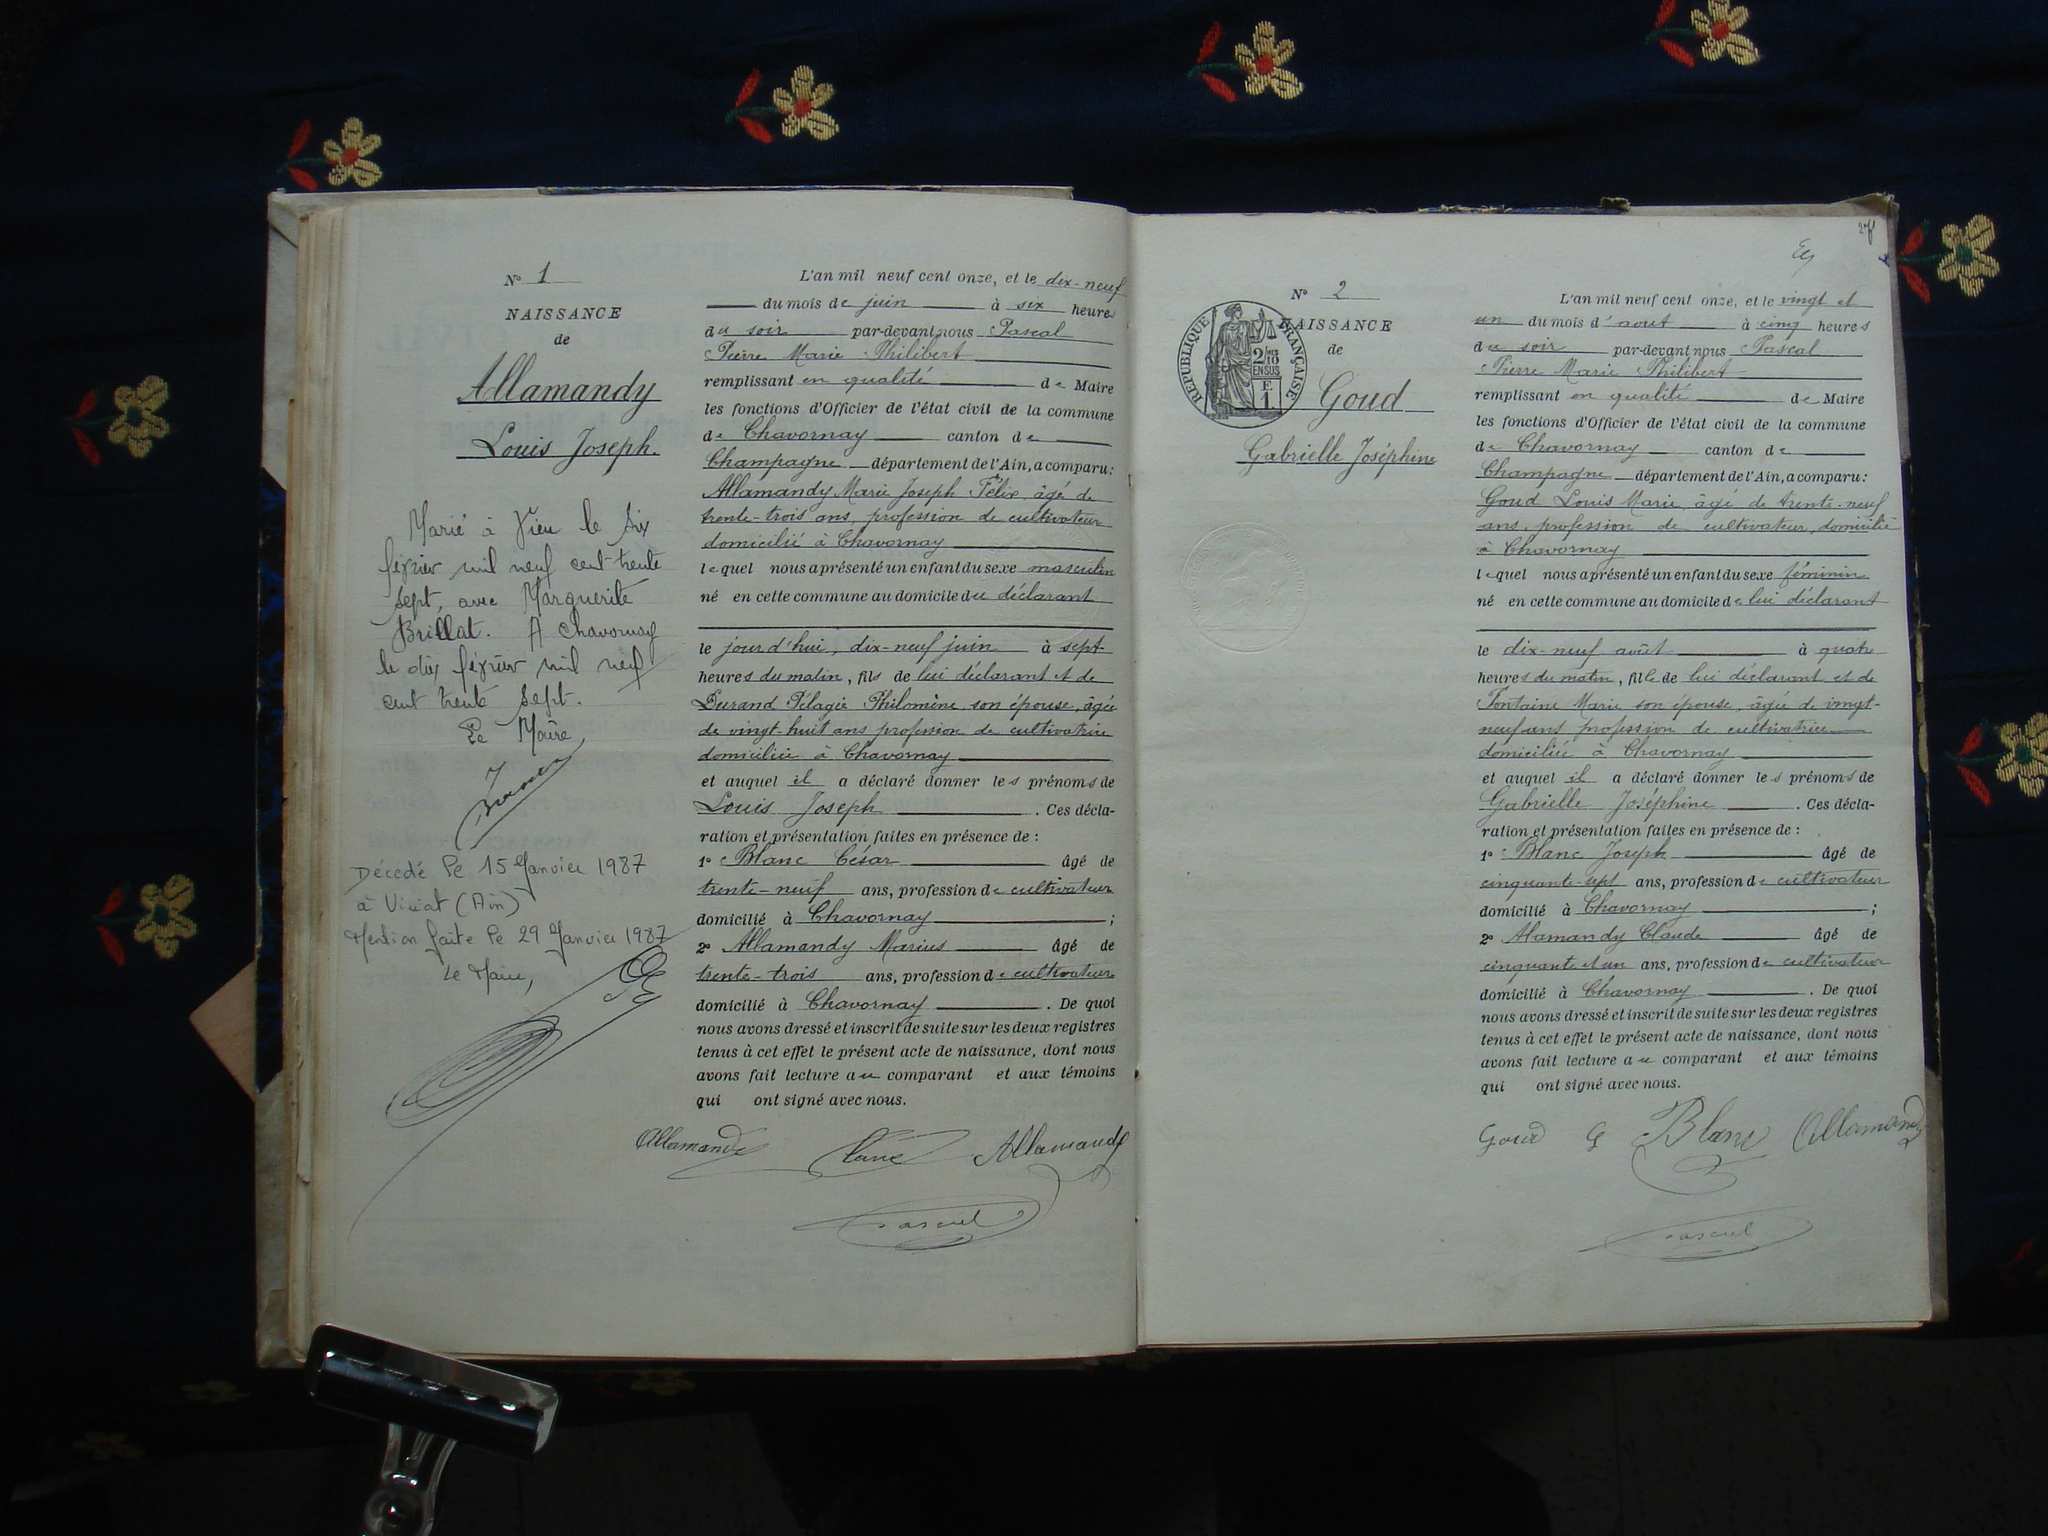 N° 1
NAISSANCE
de
Allamandy
Louis Joseph.
Marié à Vieu le six
février mil neuf cent trente
sept, avec Marguerite
Brillat. A Chavornay
le dix février mil neuf
cent trente sept.
Le Maire,
Décédé le 15 Janvier 1987
à Viriat (Ain)
Mention faite le 29 Janvier 1987
Le Maire,
L'an mil neuf cent onze, et le dix-neuf
du mois de juin à six heures
du soir par-devant nous Pascal
Pierre Marie Philibert
remplissant en qualité de Maire
les fonctions d'Officier de l'état civil de la commune
de Chavornay canton de
Champagne département de l'Ain, a comparu:
Allamandy Marie Joseph Félix, âgé de
trente-trois ans, profession de cultivateur
domicilié à Chavornay
lequel nous a présenté un enfant du sexe masculin
né en cette commune au domicile du déclarant
le jour d'hui, dix-neuf juin à sept
heures du matin, fils de lui déclarant et de
Durand Pélagie Philomène son épouse, âgée
de vingt-huit ans profession de cultivatrice
domiciliée à Chavornay
et auquel il a déclaré donner les prénoms de
Louis Joseph. Ces décla-
ration et présentation faites en présence de :
1° Blanc César âgé de
trente-neuf ans, profession de cultivateur
domicilié à Chavornay ;
2° Allamandy Marius âgé de
trente-trois ans, profession de cultivateur
domicilié à Chavornay. De quoi
nous avons dressé et inscrit de suite sur les deux registres
tenus à cet effet le présent acte de naissance, dont nous
avons fait lecture au comparant et aux témoins
qui ont signé avec nous.
Allamandy Allamandy
Pascal
N° 2
NAISSANCE
de
Goud
Gabrielle Joséphine
REPUBLIQUE FRANÇAISE
2/10
EN SUS
E
1
L'an mil neuf cent onze, et le vingt et
un du mois d'août à cinq heures
du soir par-devant nous Pascal
Pierre Marie Philibert
remplissant en qualité de Maire
les fonctions d'Officier de l'état civil de la commune
de Chavornay canton de
Champagne département de l'Ain, a comparu:
Goud Louis Marie, âgé de trente-neuf
ans, profession de cultivateur, domicilié
à Chavornay
lequel nous a présenté un enfant du sexe féminin
né en cette commune au domicile de lui déclarant
le dix-neuf août à quatre
heures du matin, fille de lui déclarant et de
Fontaine Marie son épouse, âgée de vingt-
neuf ans profession de cultivatrice
domiciliée à Chavornay
et auquel il a déclaré donner les prénoms de
Gabrielle Joséphine. Ces décla-
ration et présentation faites en présence de :
1° Blanc Joseph âgé de
cinquante-sept ans, profession de cultivateur
domicilié à Chavornay ;
2° Alamandy Claude âgé de
cinquante et un ans, profession de cultivateur
domicilié à Chavornay. De quoi
nous avons dressé et inscrit de suite sur les deux registres
tenus à cet effet le présent acte de naissance, dont nous
avons fait lecture au comparant et aux témoins
qui ont signé avec nous.
Goud G Blanc Allamandy
Pascal